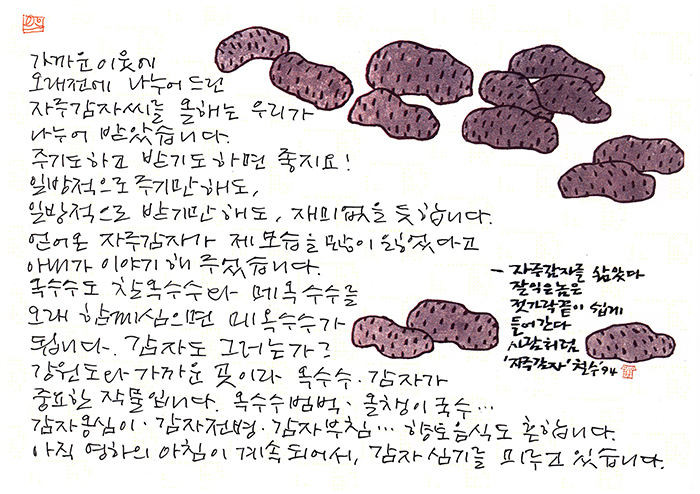 가까운 이웃에
오래전에 나누어 드린
자주감자씨를 올해는 우리가
나누어 받았습니다.
주기도하고 받기도하면 좋지요!
일방적으로 주기만 해도,
일방적으로 받기만 해도, 재미없을 듯 합니다.
얻어온 자주감자가 제 모습을 많이 잃었다고
아내가 이야기 해 주었습니다.
옥수수도 찰옥수수와 메옥수수를
오래 함께심으면 메옥수수가
됩니다. 감자도 그러는가?
강원도와 가까운 곳이라 옥수수·감자가
중요한 작물입니다. 옥수수범벅·올챙이국수…
감자옹심이·감자전병·감자부침… 향토음식도 흔합니다.
아직 영하의 아침이 계속되어서, 감자 심기를 미루고 있습니다.
– 자주감자를 삶았다
잘 익은 놈은
젓가락 끝이 쉽게
들어간다
사람처럼
'자주감자' 철수 '94